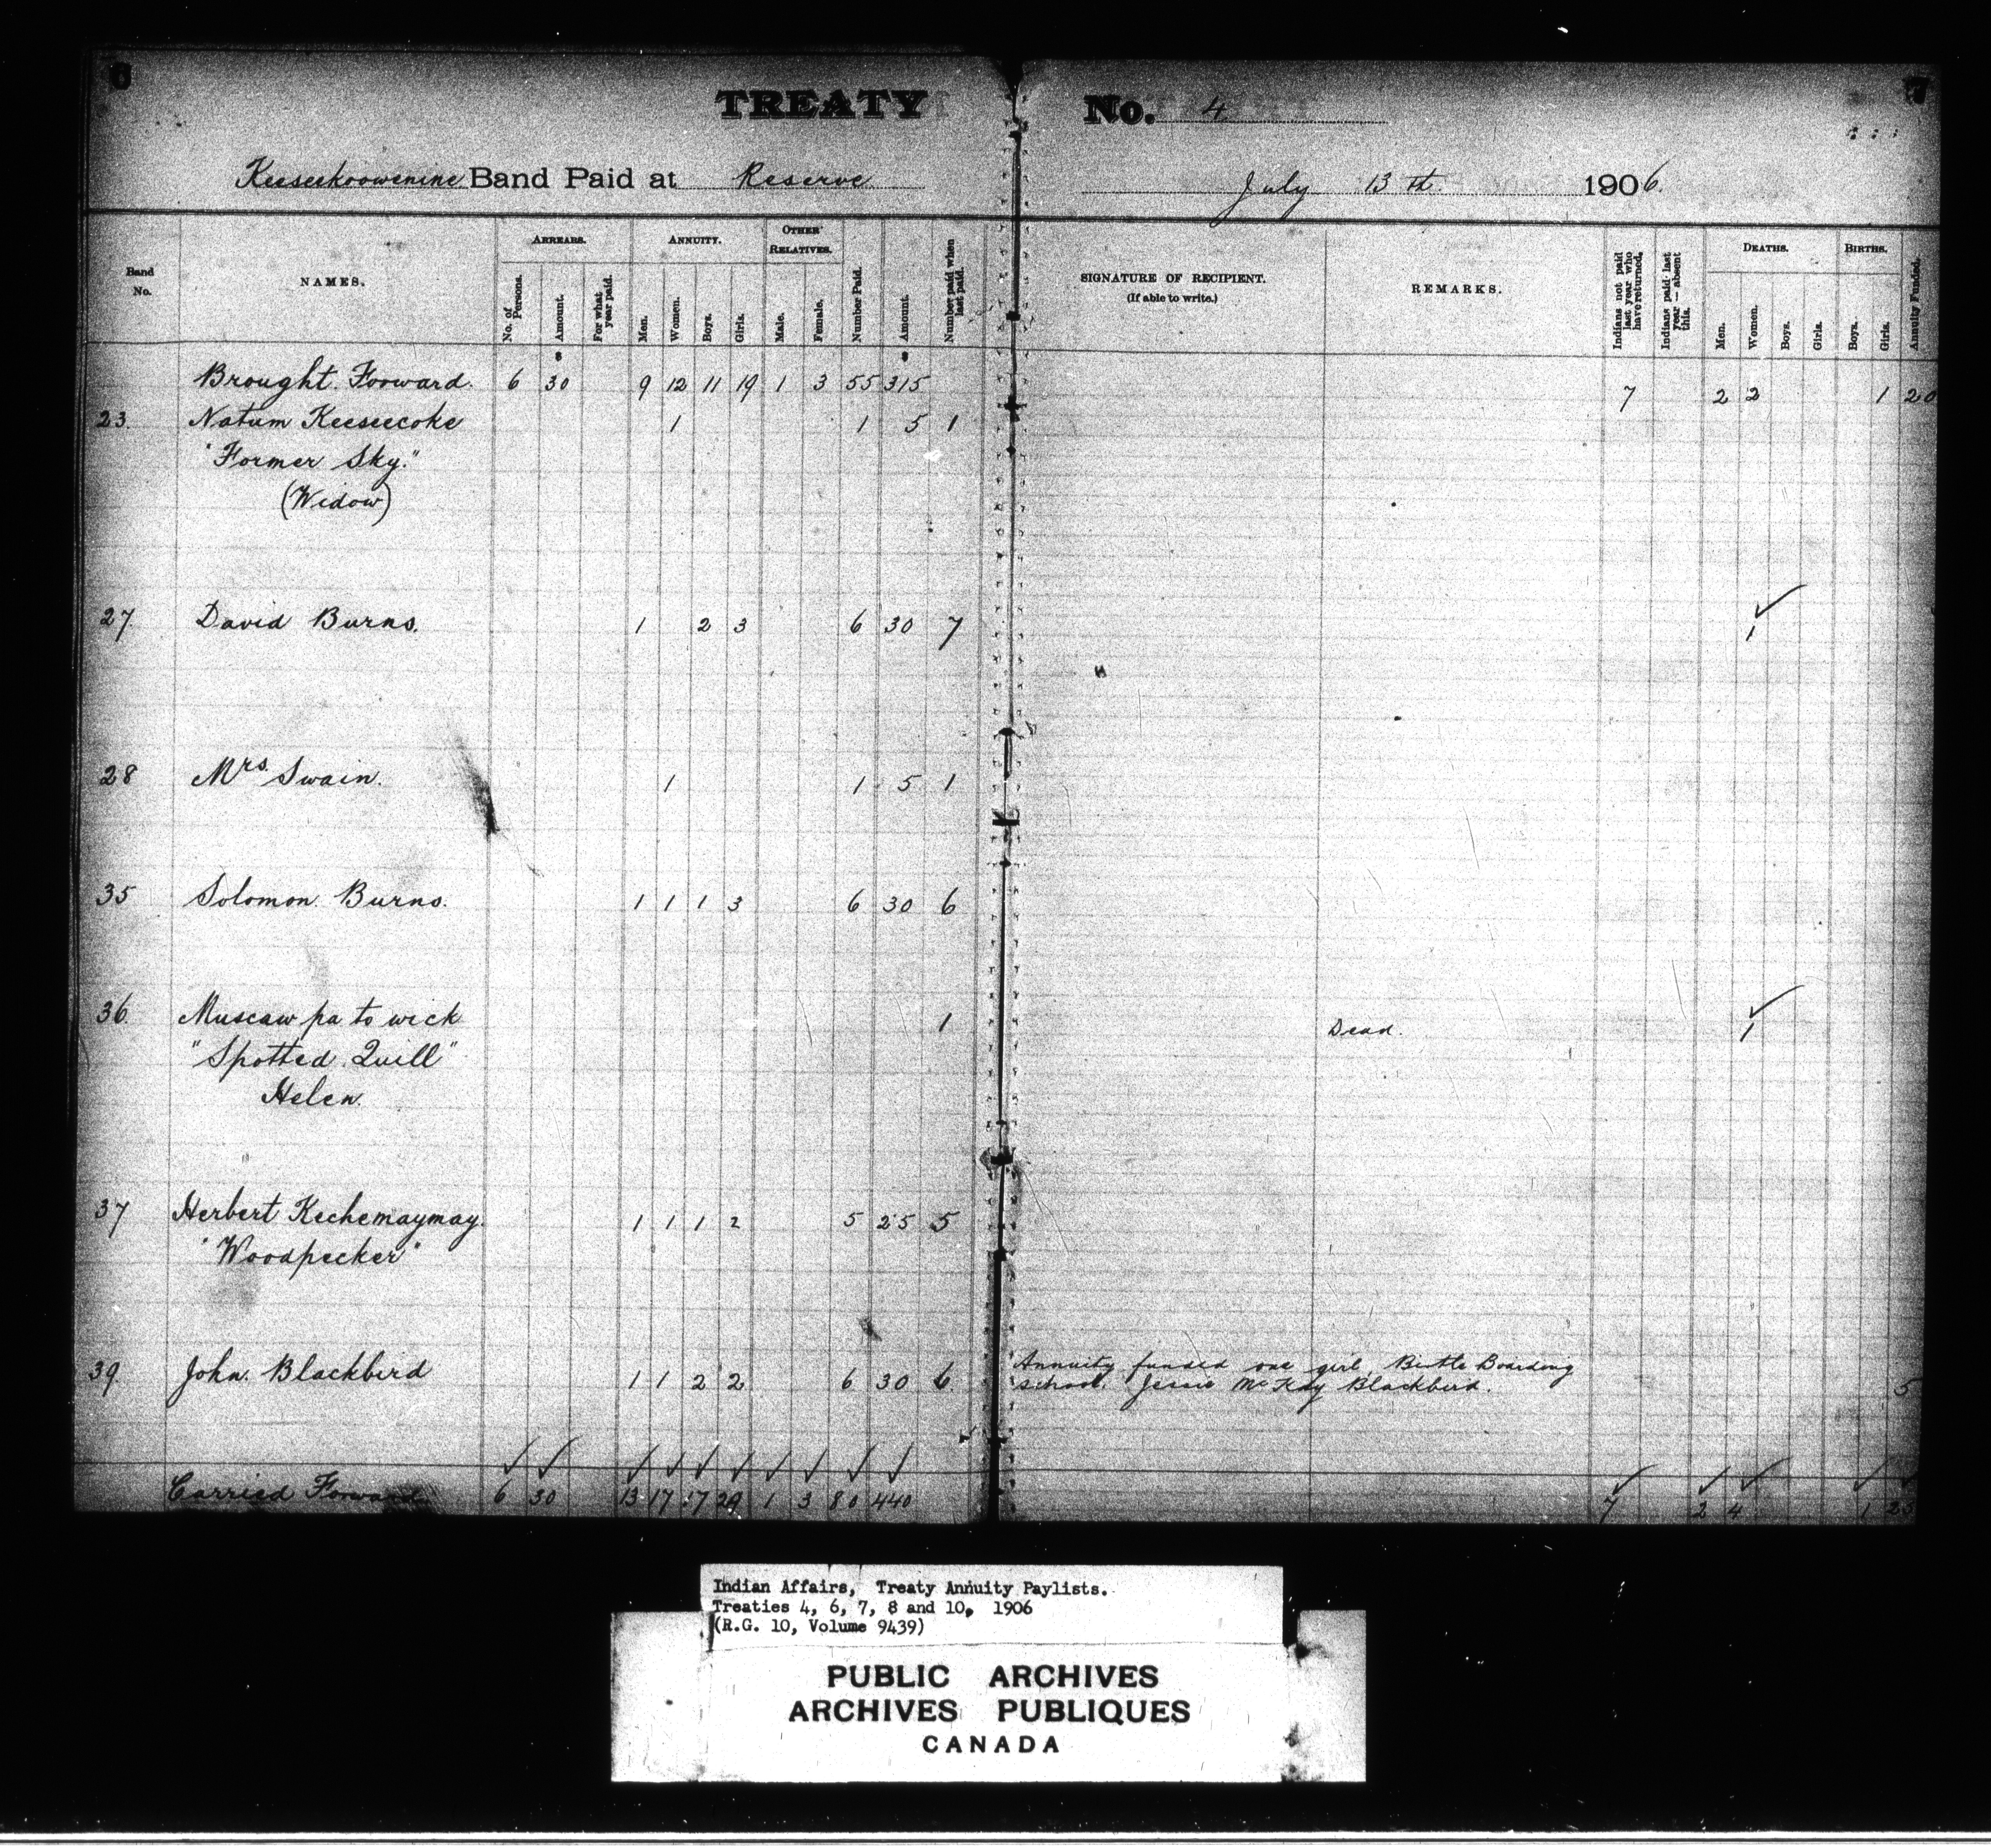 6
7
TREATY No. 4
Keeseekoowenine Band Paid at Reserve July 13th 1906
Band No.
NAMES.
ARREARS.
No. of Persons.
Amount.
For what year paid.
ANNUITY.
Men.
Women.
Boys.
Girls.
OTHER RELATIVES.
Male.
Female.
Number Paid.
Amount.
Number paid when last paid.
SIGNATURE OF RECIPIENT.
(If able to write.)
REMARKS.
Indians not paid last year who have returned.
Indians paid last year — absent this.
DEATHS.
Men.
Women.
Boys.
Girls.
BIRTHS.
Boys.
Girls.
Annuity Funded.
Brought Forward. 6 30 9 12 11 19 1 3 55 315 7 2 2 1 20
23. Natum Keeseecoke 1 1 5 1
"Former Sky."
(Widow)
27. David Burns. 1 2 3 6 30 7 1
28 Mrs. Swain. 1 1 5 1
35 Solomon Burns. 1 1 1 3 6 30 6
36. Muscaw pa to wick 1 Dead. 1
"Spotted Quill"
Helen.
37 Herbert Kechemaymay. 1 1 1 2 5 25 5
"Woodpecker"
39. John Blackbird 1 1 2 2 6 30 6 5
Annuity funded one girl, Birtle Boarding
school. Jessie McKay Blackbird.
Carried Forward 6 30 13 17 17 29 1 3 80 440 7 2 4 1 25
Indian Affairs, Treaty Annuity Paylists.
Treaties 4, 6, 7, 8 and 10, 1906
(R.G. 10, Volume 9439)
PUBLIC ARCHIVES
ARCHIVES PUBLIQUES
CANADA